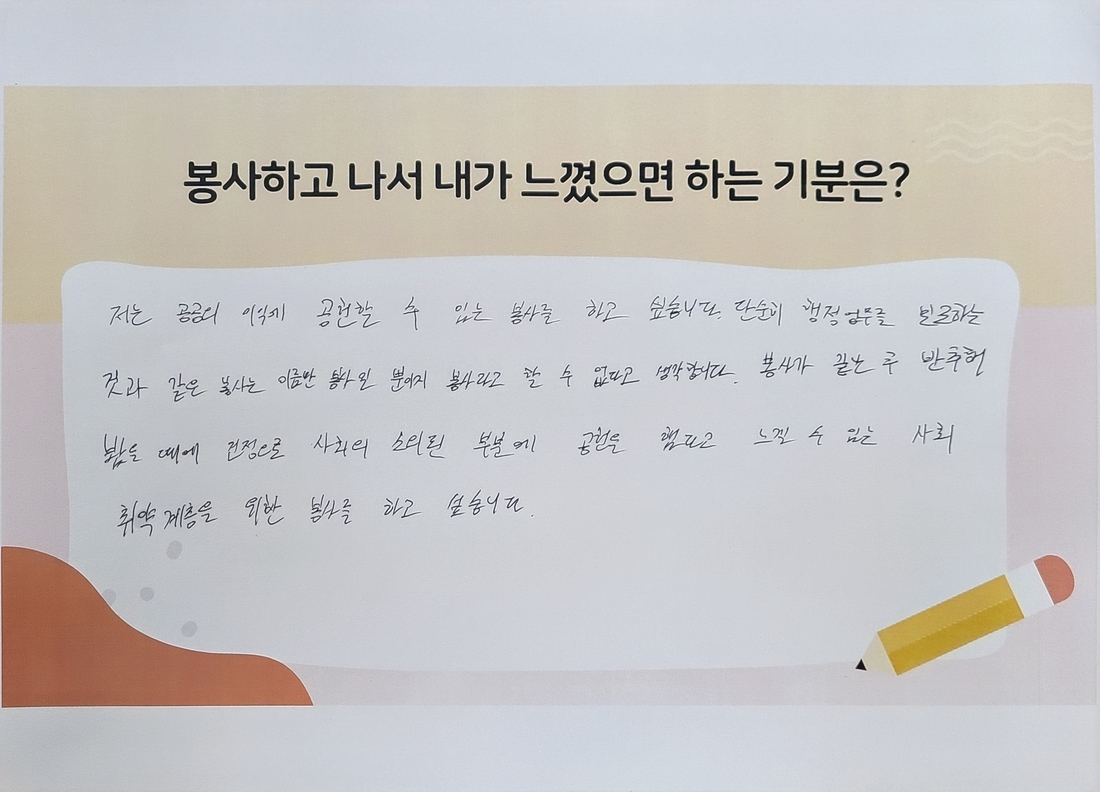 봉사하고 나서 내가 느꼈으면 하는 기분은?
저는 공공의 이익에 공헌할 수 있는 봉사를 하고 싶습니다. 단순히 행정업무를 보조하는
것과 같은 봉사는 이름만 봉사일 뿐이지 봉사라고 할 수 없다고 생각합니다. 봉사가 끝난 후 반추해
봤을 때에 진정으로 사회의 소외된 부분에 공헌을 했다고 느낄 수 있는 사회
취약계층을 위한 봉사를 하고 싶습니다.